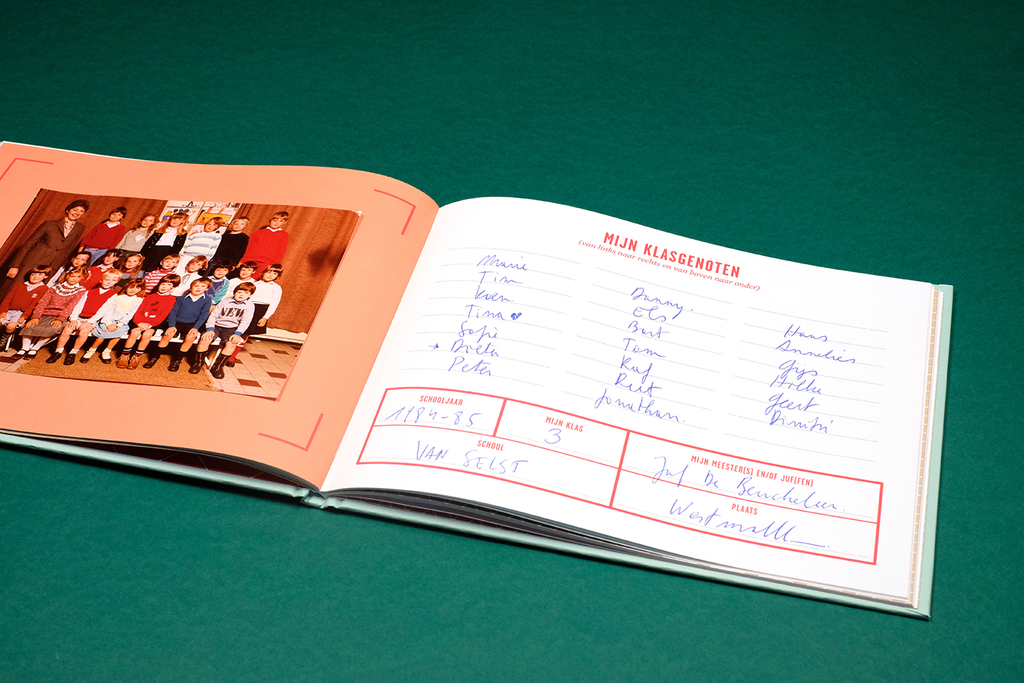 MIJN KLASGENOTEN
(van links naar rechts en van boven naar onder)
Marie
Tim
Koen
Tina ♥
Sofie
→ Dorien
Peter
Danny.
Els
Bart
Tom
Raf
Ruth
Jonathan.
Hans
Annelies
Gijs
Hilke
Geert
Dimitri
SCHOOLJAAR
1984-85
MIJN KLAS
3
SCHOOL
VAN SELST
MIJN MEESTER(S) EN/OF JUF(FEN)
Juf De
PLAATS
Westmalle
NEW